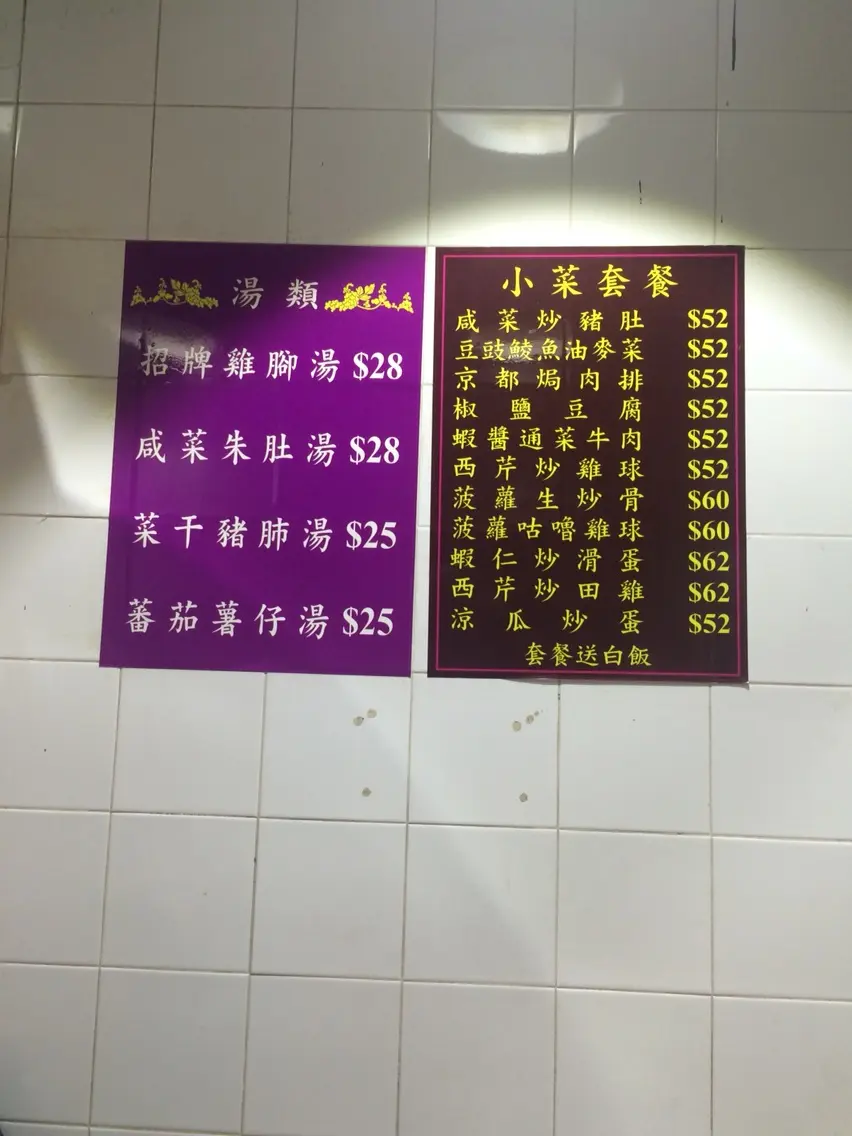 湯類
招牌雞腳湯 $28
咸菜朱肚湯 $28
菜干豬肺湯 $25
蕃茄薯仔湯 $25
小菜套餐
咸菜炒豬肚 $52
豆豉鯪魚油麥菜 $52
京都焗肉排 $52
椒鹽豆腐 $52
蝦醬通菜牛肉 $52
西芹炒雞球 $52
菠蘿生炒骨 $60
菠蘿咕嚕雞球 $60
蝦仁炒滑蛋 $62
西芹炒田雞 $62
涼瓜炒蛋 $52
套餐送白飯